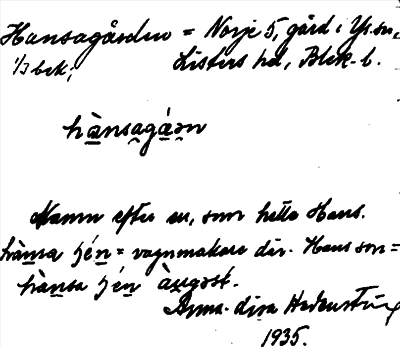 Hansagården = Norje 5, gård i Ys. sn,
1/3 bek; Listers hd, Blek. l.
hànsagáən
Namn efter en, som hette Hans.
hànsa jén = vagnmakare där. Hans son =
hànsa jén àugəst.
Anna-Lisa Hedenstierna
1935.